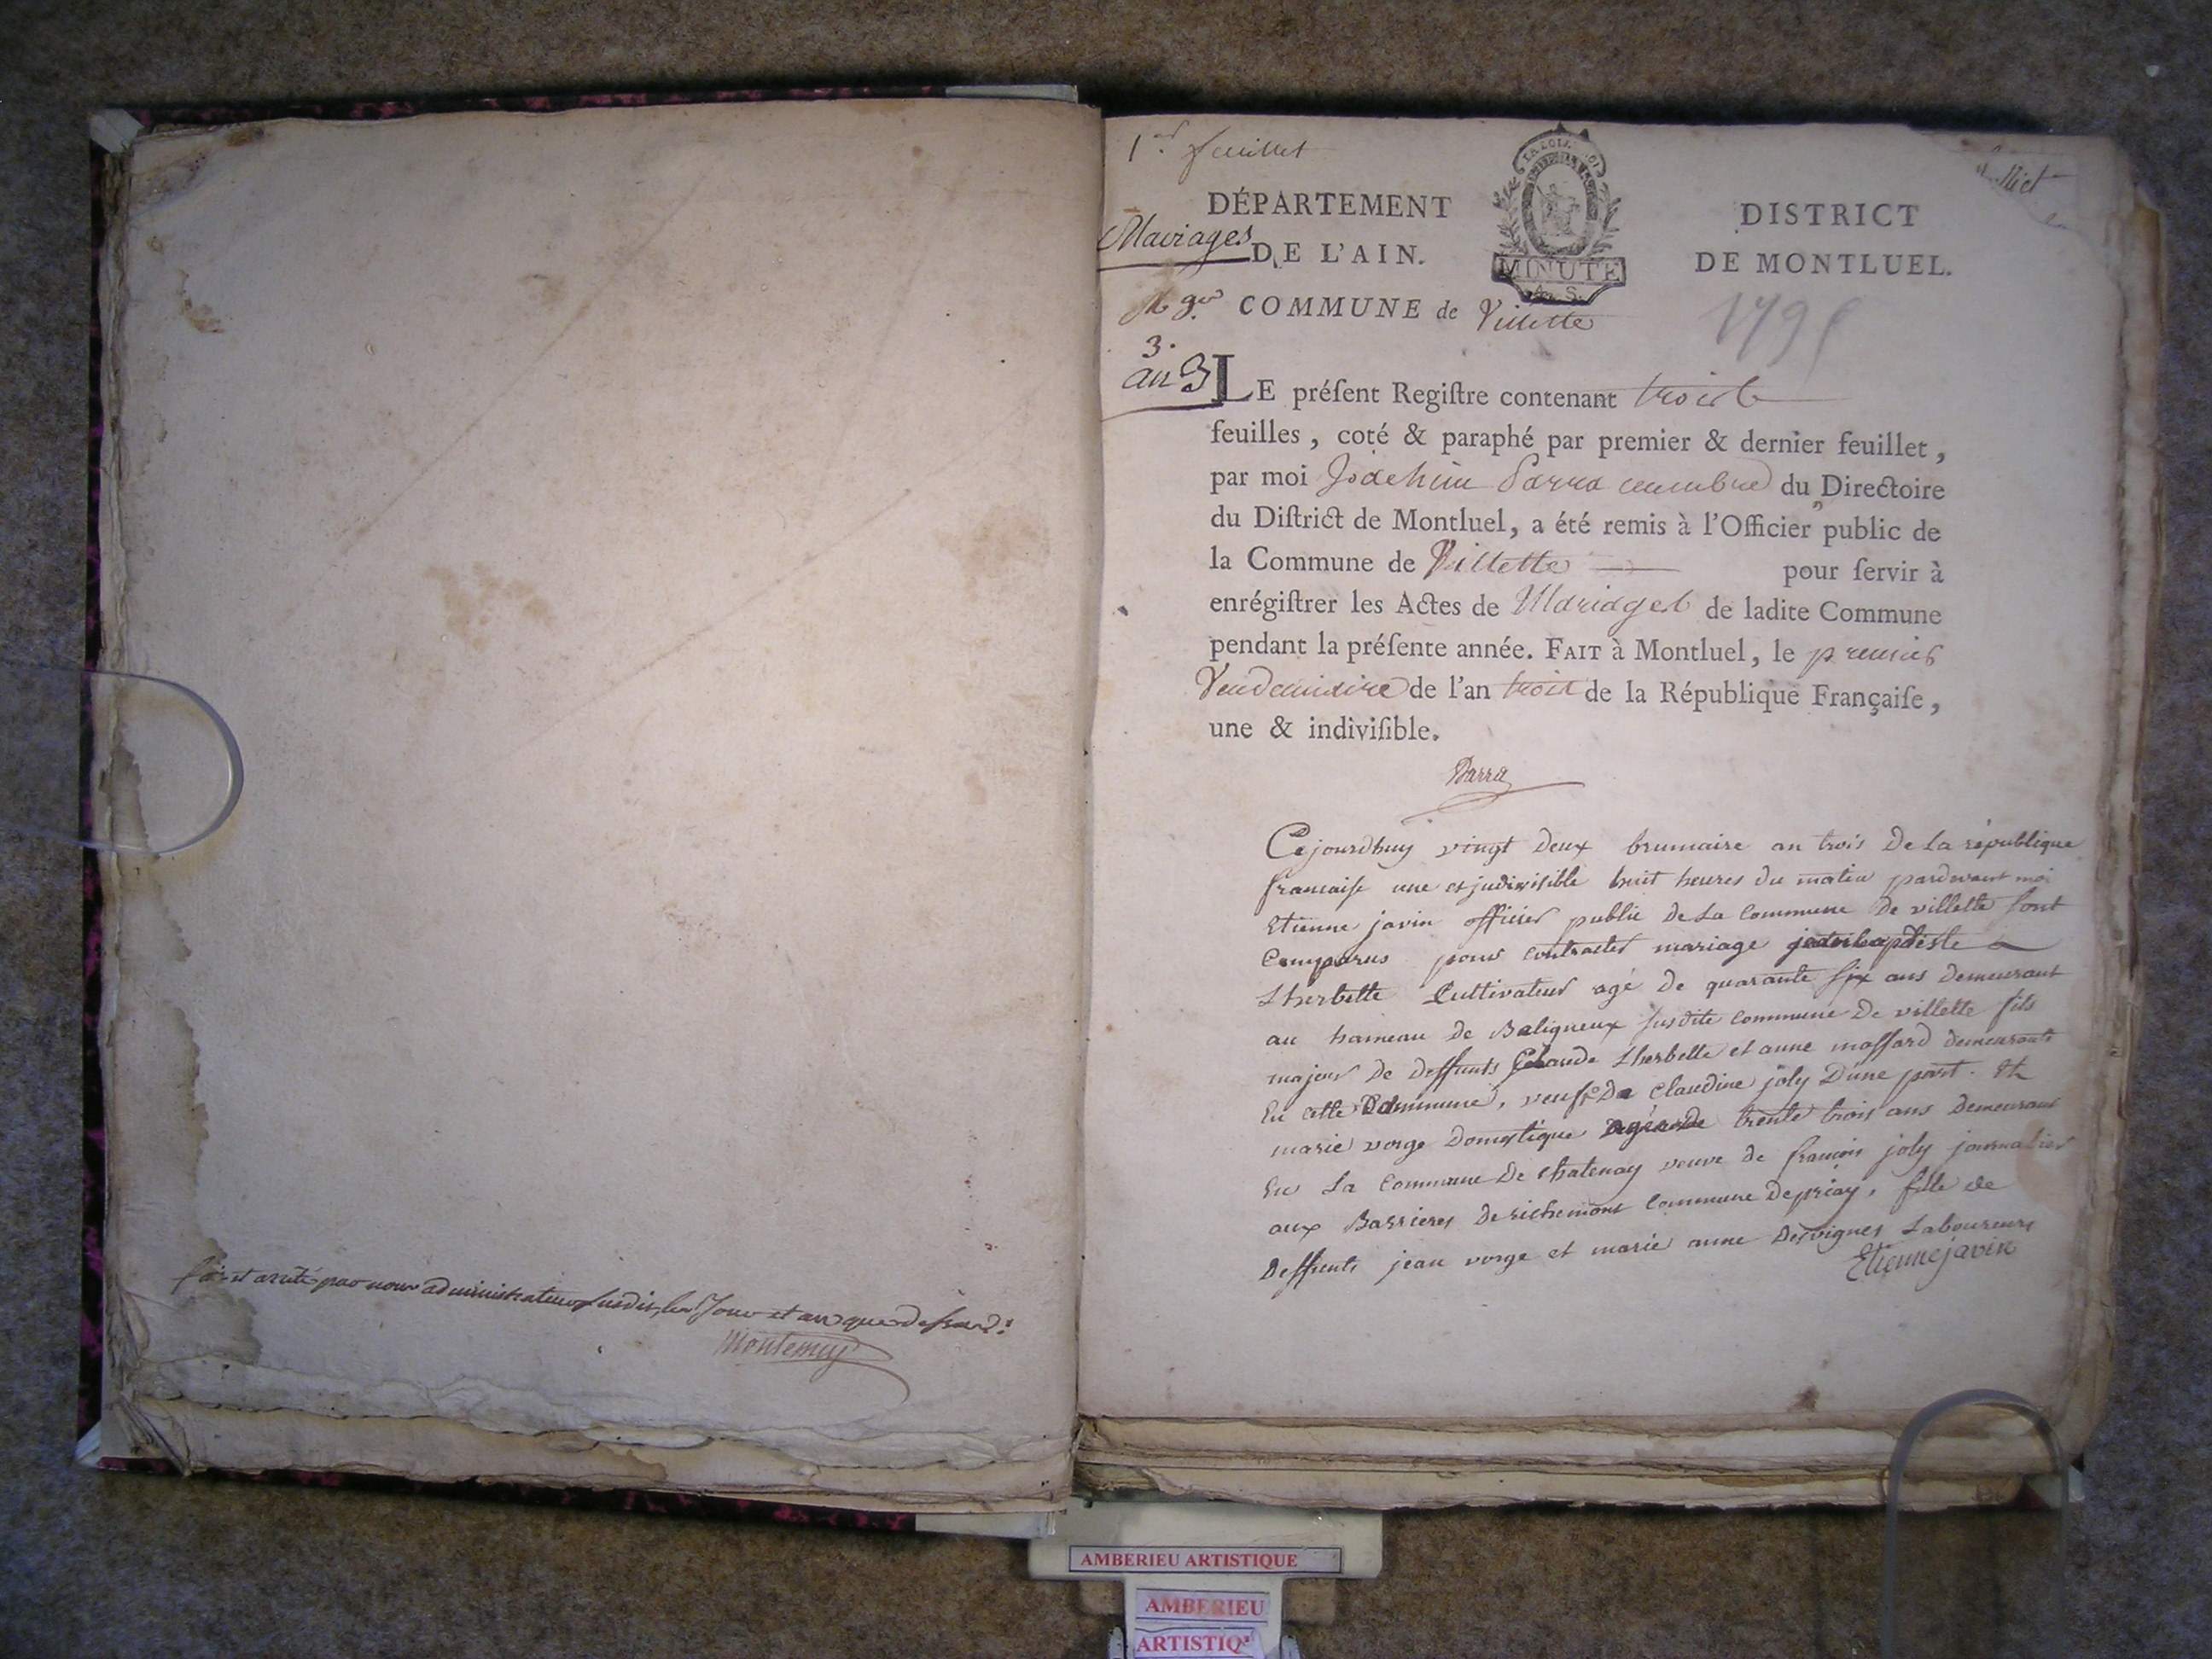 fait et arrêté par nous administrateur susdit, les Jour et an que dessus.
Montemuy
1er feuillet
DÉPARTEMENT
Mariages
DE L'AIN.
LA LOI
MINUTE
DISTRICT
DE MONTLUEL.
COMMUNE de Villette
1795
3.
an 3
LE préſent Regiſtre contenant trois
feuilles, coté & paraphé par premier & dernier feuillet,
par moi Joachim Parra membre du Directoire
du Diſtrict de Montluel, a été remis à l'Officier public de
la Commune de Villette pour ſervir à
enrégiſtrer les Actes de Mariages de ladite Commune
pendant la préſente année. FAIT à Montluel, le premier
Vendemiaire de l'an trois de la République Françaiſe,
une & indiviſible.
Parra
Cejourdhuy vingt deux brumaire an trois De La république
francaise une et judivisible huit heures du matin pardevant moi
Etienne javin officier public de La Commune De villette sont
Comparus pour contracter mariage jeanbaptiste
Lherbette Cultivateur agé de quarante six ans demeurant
au hameau de Baligneux susdite commune De villette fils
majeur De deffunts Claude Lherbette et anne massard demeurants
En cette Commune, veuf De Claudine joly D'une part. Et
marie vorge Domestique agée de trente trois ans Demeurant
En La Commune De Chatenay veuve de francois joly journalier
aux Barrieres de richemont commune Depriay, fille de
Deffunts jean vorge et marie anne Desvignes Laboureurs
Etienne javin
AMBERIEU ARTISTIQUE
AMBERIEU
ARTISTIQ